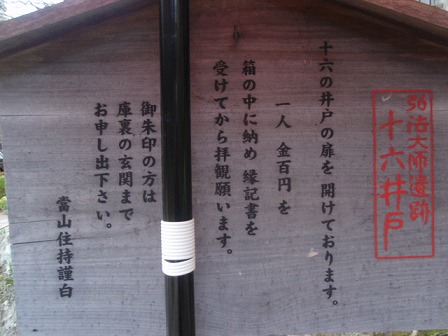 弘法大師遺跡
十六井戸
十六の井戸の扉を 開けております。
一人 金百円 を
箱の中に納め 縁記書を
受けてから拝観願います。
御朱印の方は
庫裏の玄関まで
お申し出下さい。
當山住持謹白